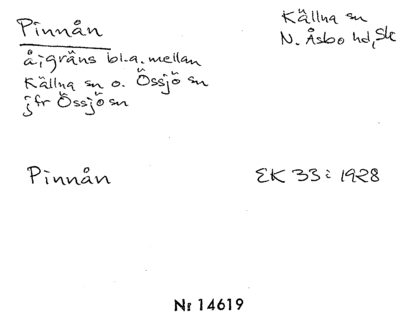 Pinnån
Källna sn
N. Åsbo hd, Sk
å; gräns bl.a. mellan
Källna sn o. Össjö sn
jfr Össjö sn
Pinnån
EK 33: 1928
Nr 14619